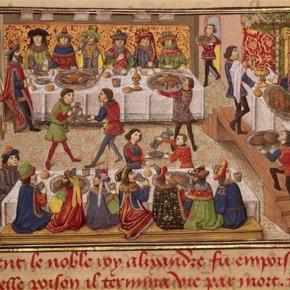 ent le noble roy alixandre fu empois
elle poison il termina vie par mort.